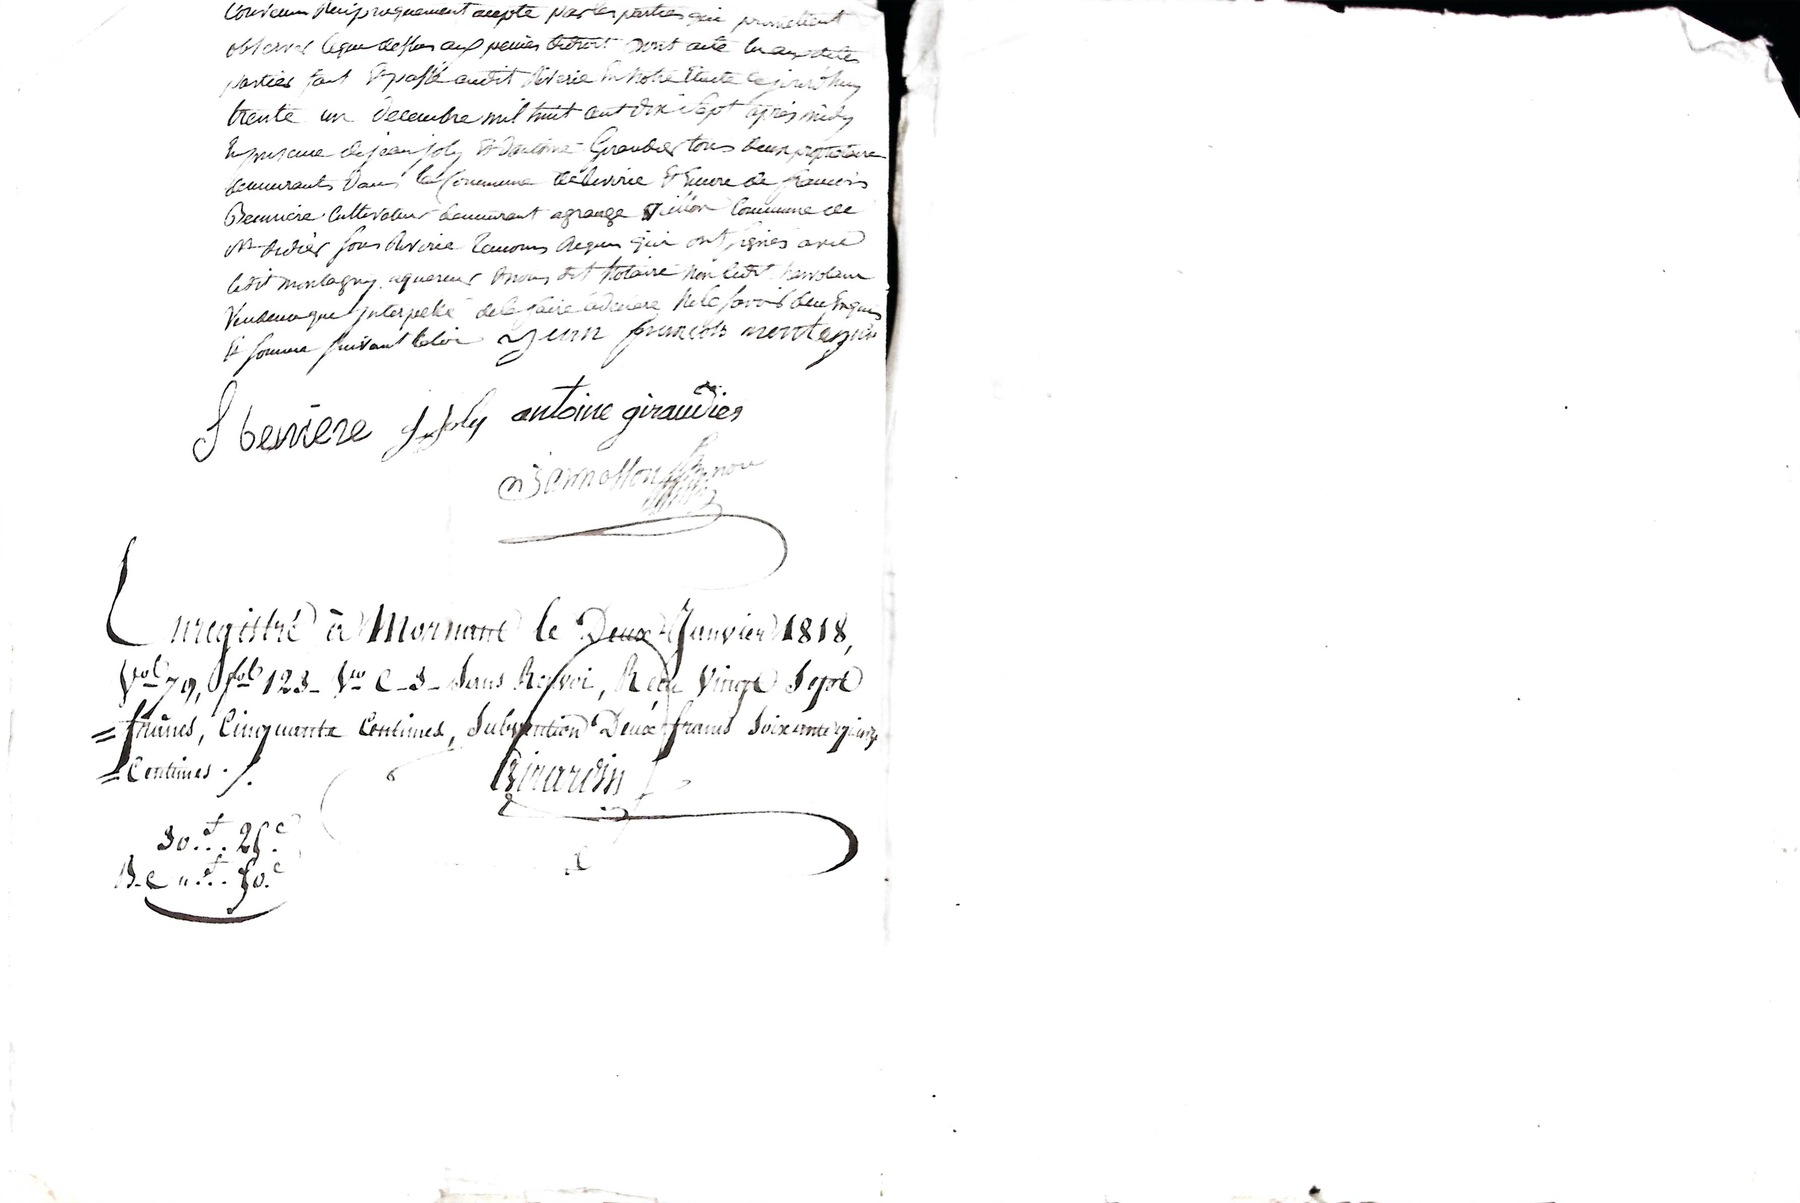 convenu réciproquement accepté par les parties qui promettent
observer ce que dessus aux peines de droit dont acte lu aux dites
parties fait et passé audit Riverie en notre Etude ce jourd'huy
trente un Decembre mil huit cent dix sept après midy
En presence de jean joly et d'antoine Giraudier tous deux proprietaires
demeurants dans la Commune de Riverie et Encore de francois
Besniere Cultivateur demeurant a grange commune de
St didier sous Riverie temoins requis qui ont signés avec
ledit montagny aquereur et nous dit Notaire non ledit
vendeur que interpellé de le faire a declaré ne le savoir de ce Enquis
Et sommé suivant la loi Jean francois montagnie
f besniere j joly antoine giraudier
Enregistré à Mornant le Deux Janvier 1818,
Vol. 79, fol. 123 Vo C 3 Sans Renvoi, Reçu Vingt Sept
= francs, Cinquante Centimes, Subvention Deux francs Soixante quinze
= Centimes ./.
Girardin
30.f.. 25.c
B.C ".f.. 50.c